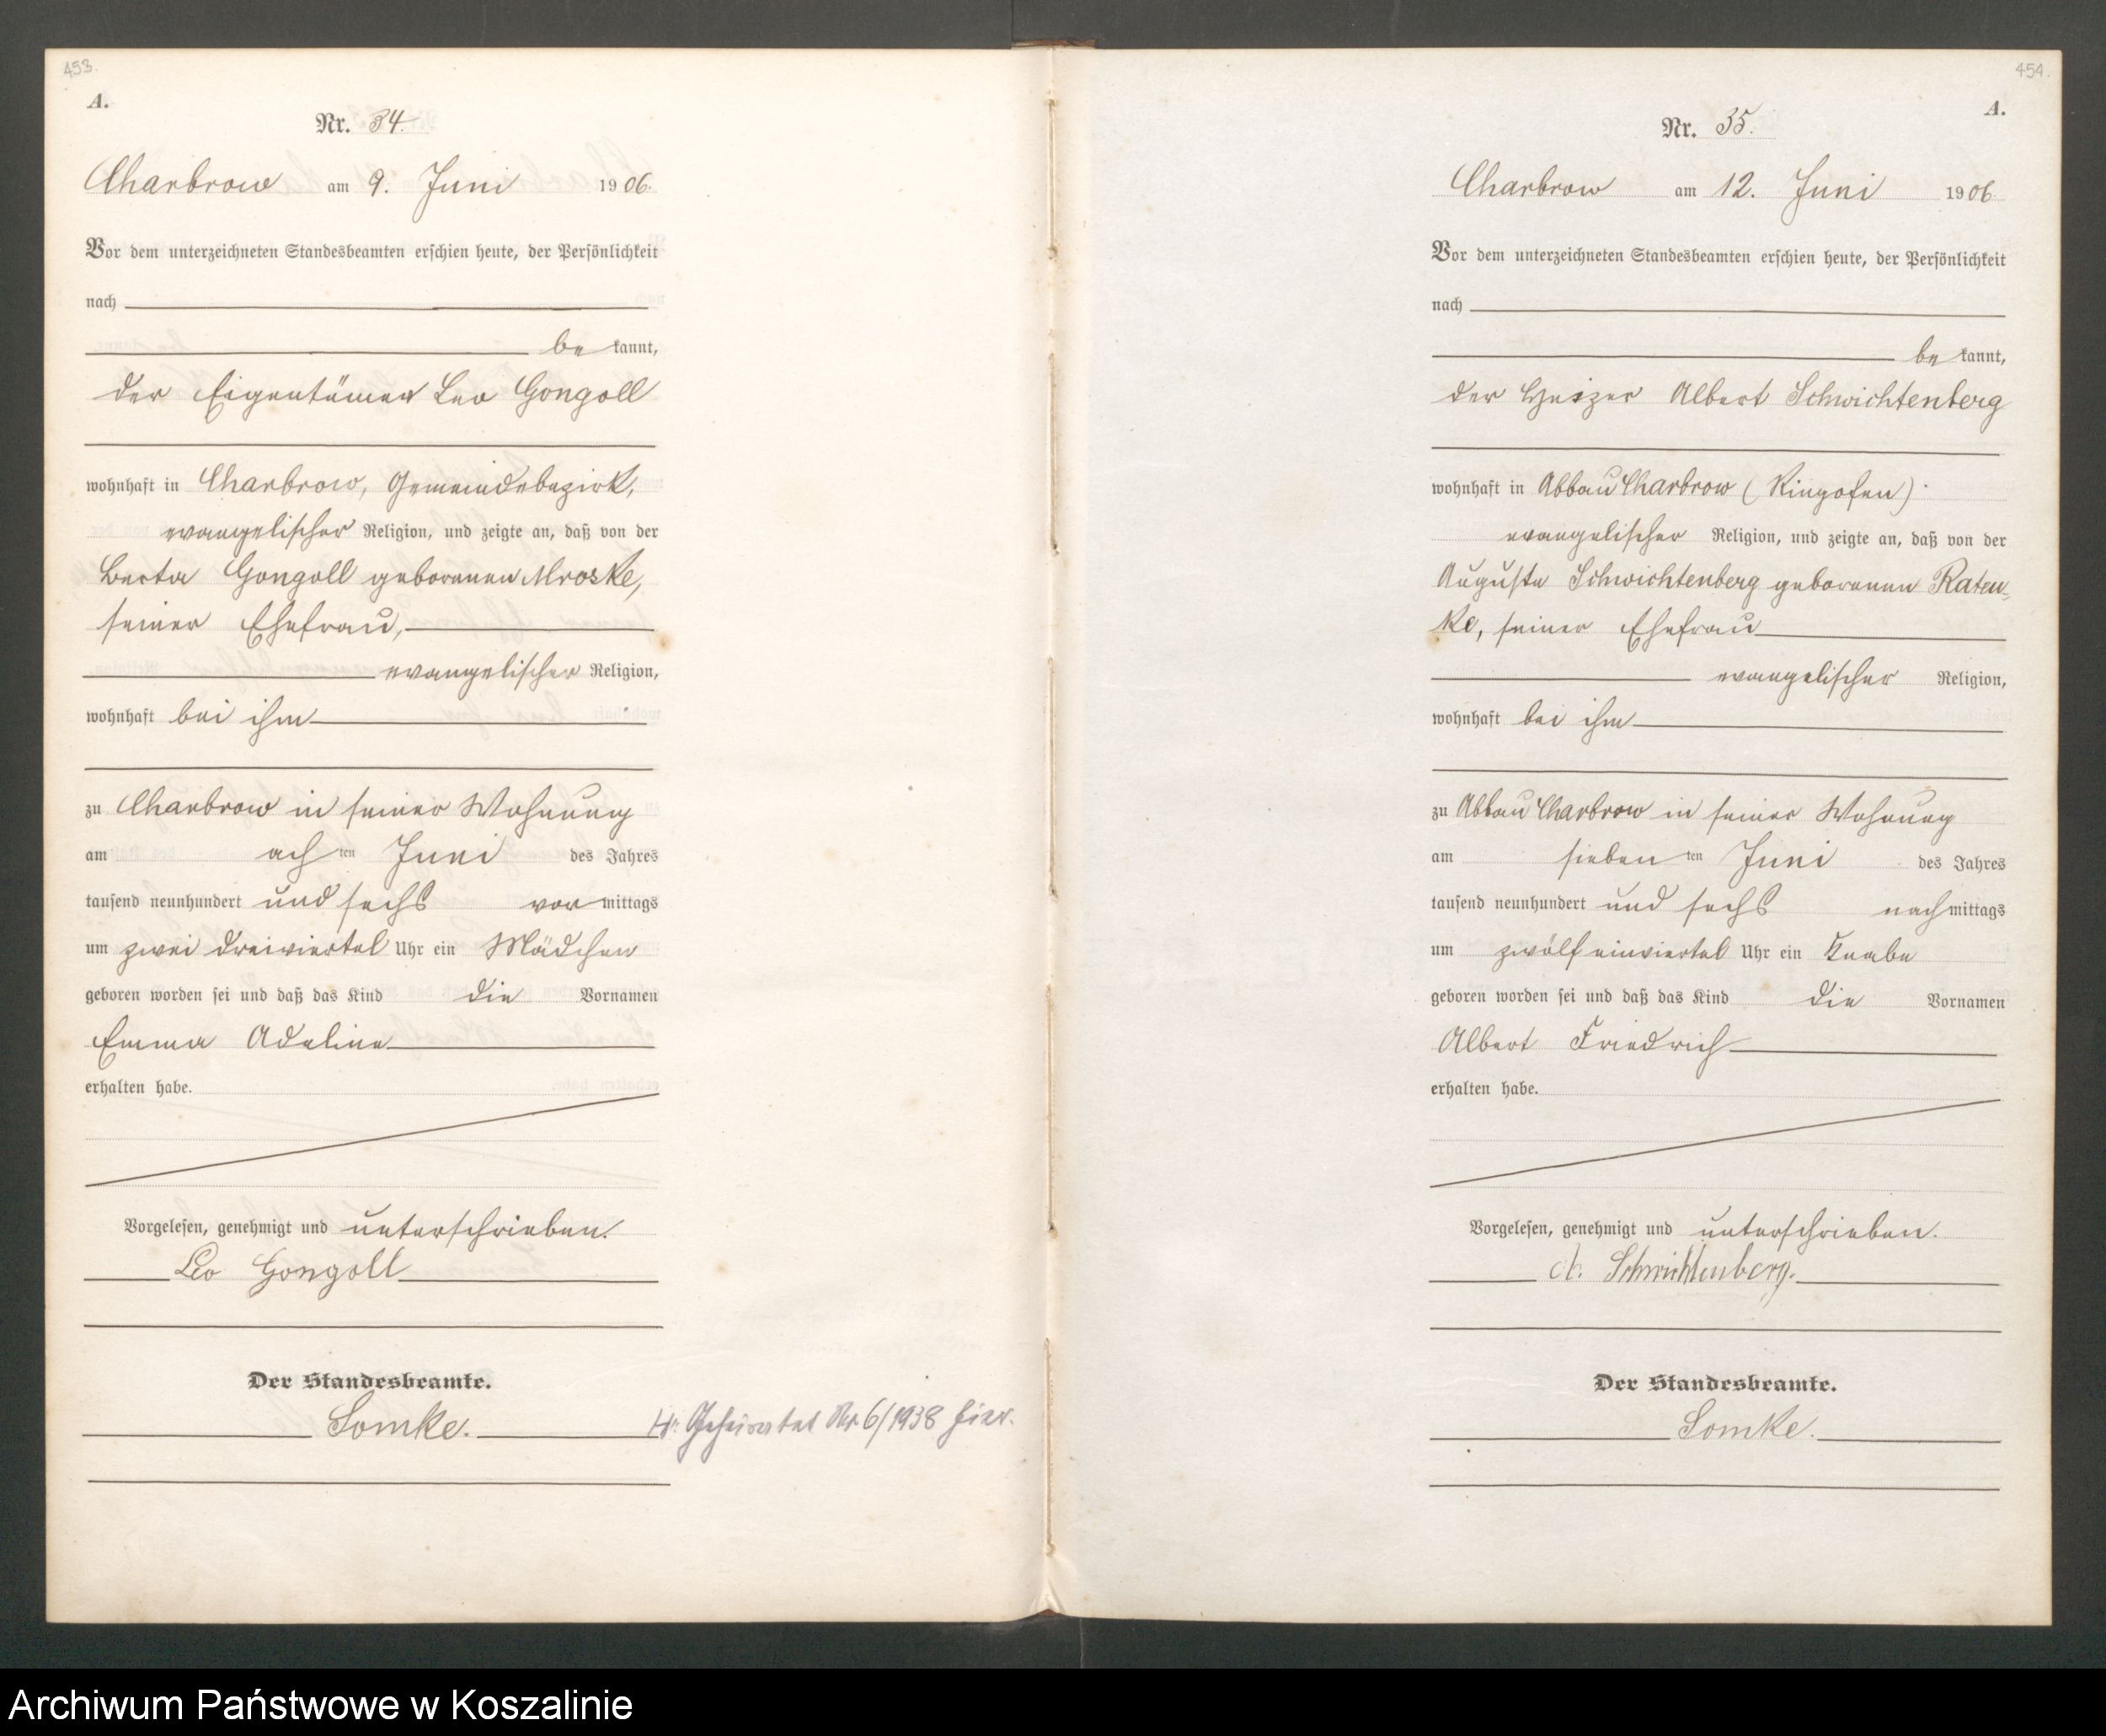 453.
A.
Nr. 34.
Charbrow am 9. Juni 1906.
Vor dem unterzeichneten Standesbeamten erschien heute, der Persönlichkeit
nach
bekannt,
der Eigentümer Leo Gongoll
wohnhaft in Charbrow, Gemeindebezirk,
evangelischer Religion, und zeigte an, daß von der
Berta Gongoll geborenen Mroske,
seiner Ehefrau,
evangelischer Religion,
wohnhaft bei ihm
zu Charbrow in seiner Wohnung
am achten Juni des Jahres
tausend neunhundert und sechs vormittags
um zwei dreiviertel Uhr ein Mädchen
geboren worden sei und daß das Kind die Vornamen
Emma Adeline
erhalten habe.
Vorgelesen, genehmigt und unterschrieben.
Leo Gongoll
Der Standesbeamte.
Somke.
H. Geheiratet Nr 6/1938 hier.
454.
A.
Nr. 35.
Charbrow am 12. Juni 1906
Vor dem unterzeichneten Standesbeamten erschien heute, der Persönlichkeit
nach
bekannt,
der Heizer Albert Schwichtenberg
wohnhaft in Abbau Charbrow (Ringofen).
evangelischer Religion, und zeigte an, daß von der
Auguste Schwichtenberg geborenen Raten-
ke, seiner Ehefrau
evangelischer Religion,
wohnhaft bei ihm
zu Abbau Charbrow in seiner Wohnung
am siebenten Juni des Jahres
tausend neunhundert und sechs nachmittags
um zwölf einviertel Uhr ein Knabe
geboren worden sei und daß das Kind die Vornamen
Albert Friedrich
erhalten habe.
Vorgelesen, genehmigt und unterschrieben.
A. Schwichtenberg.
Der Standesbeamte.
Somke.
Archiwum Państwowe w Koszalinie